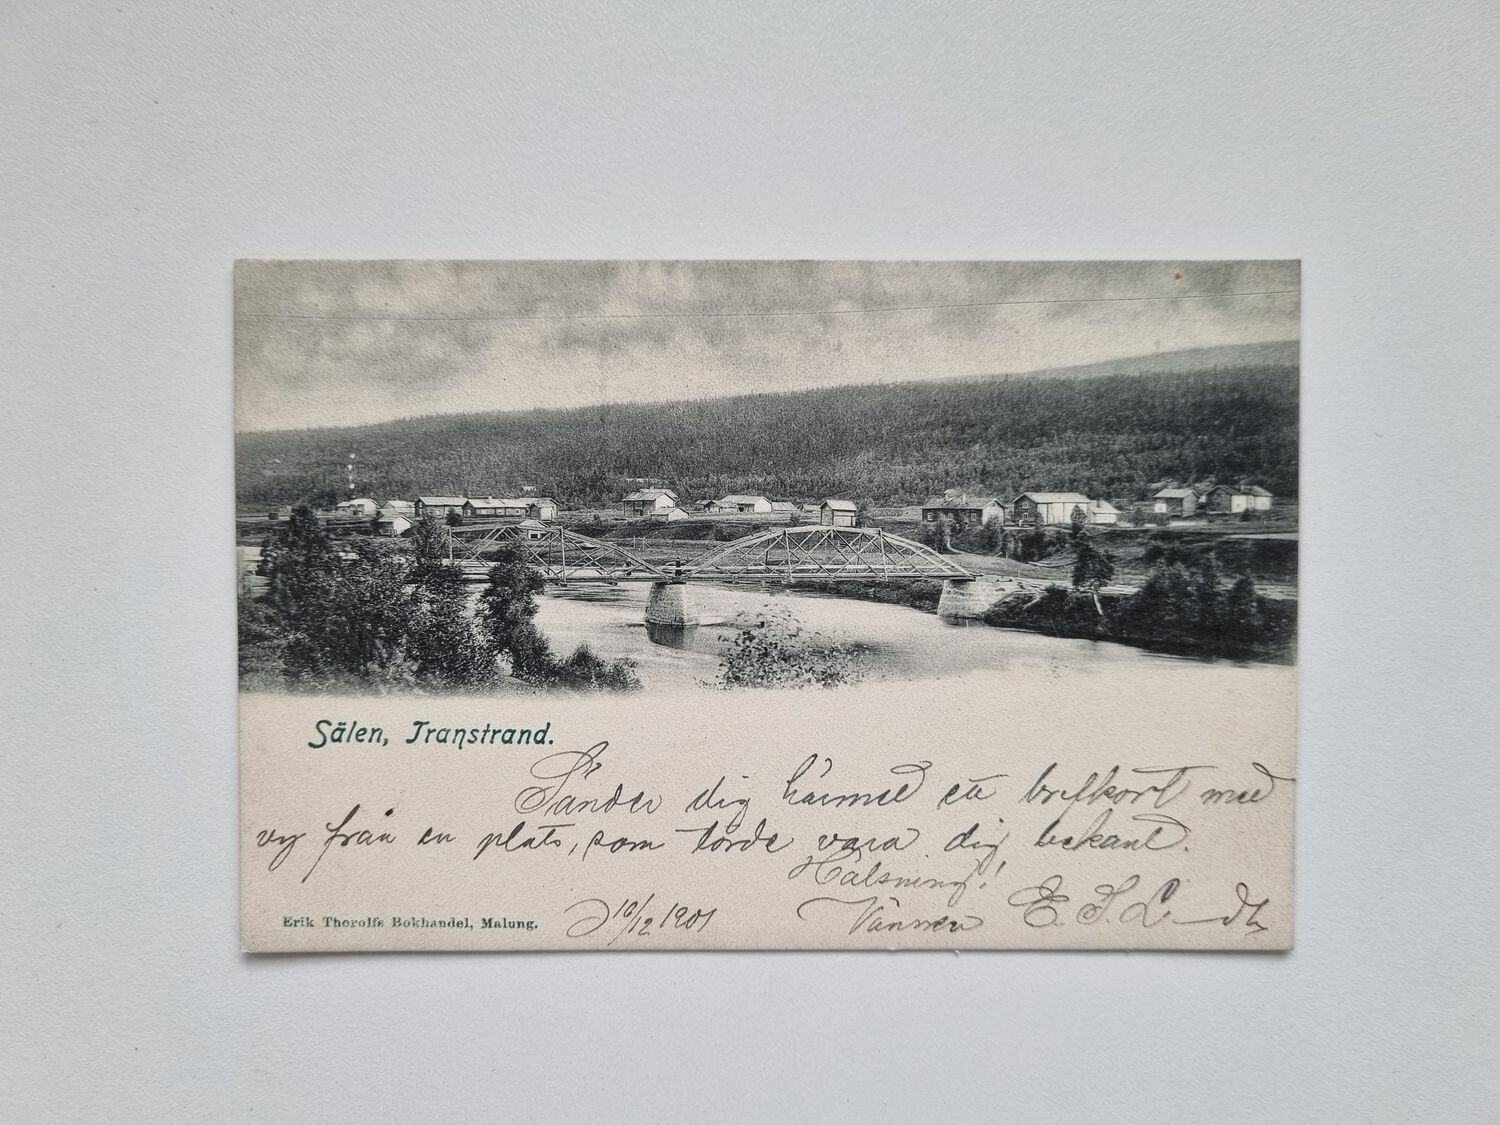 Sälen, Transtrand.
Sänder dig härmed ett brefkort med
vy från en plats, som torde vara dig bekant.
Hälsning!
Erik Thorolfs Bokhandel, Malung.
D 10/12 1901
Vännen E. S. L—dh